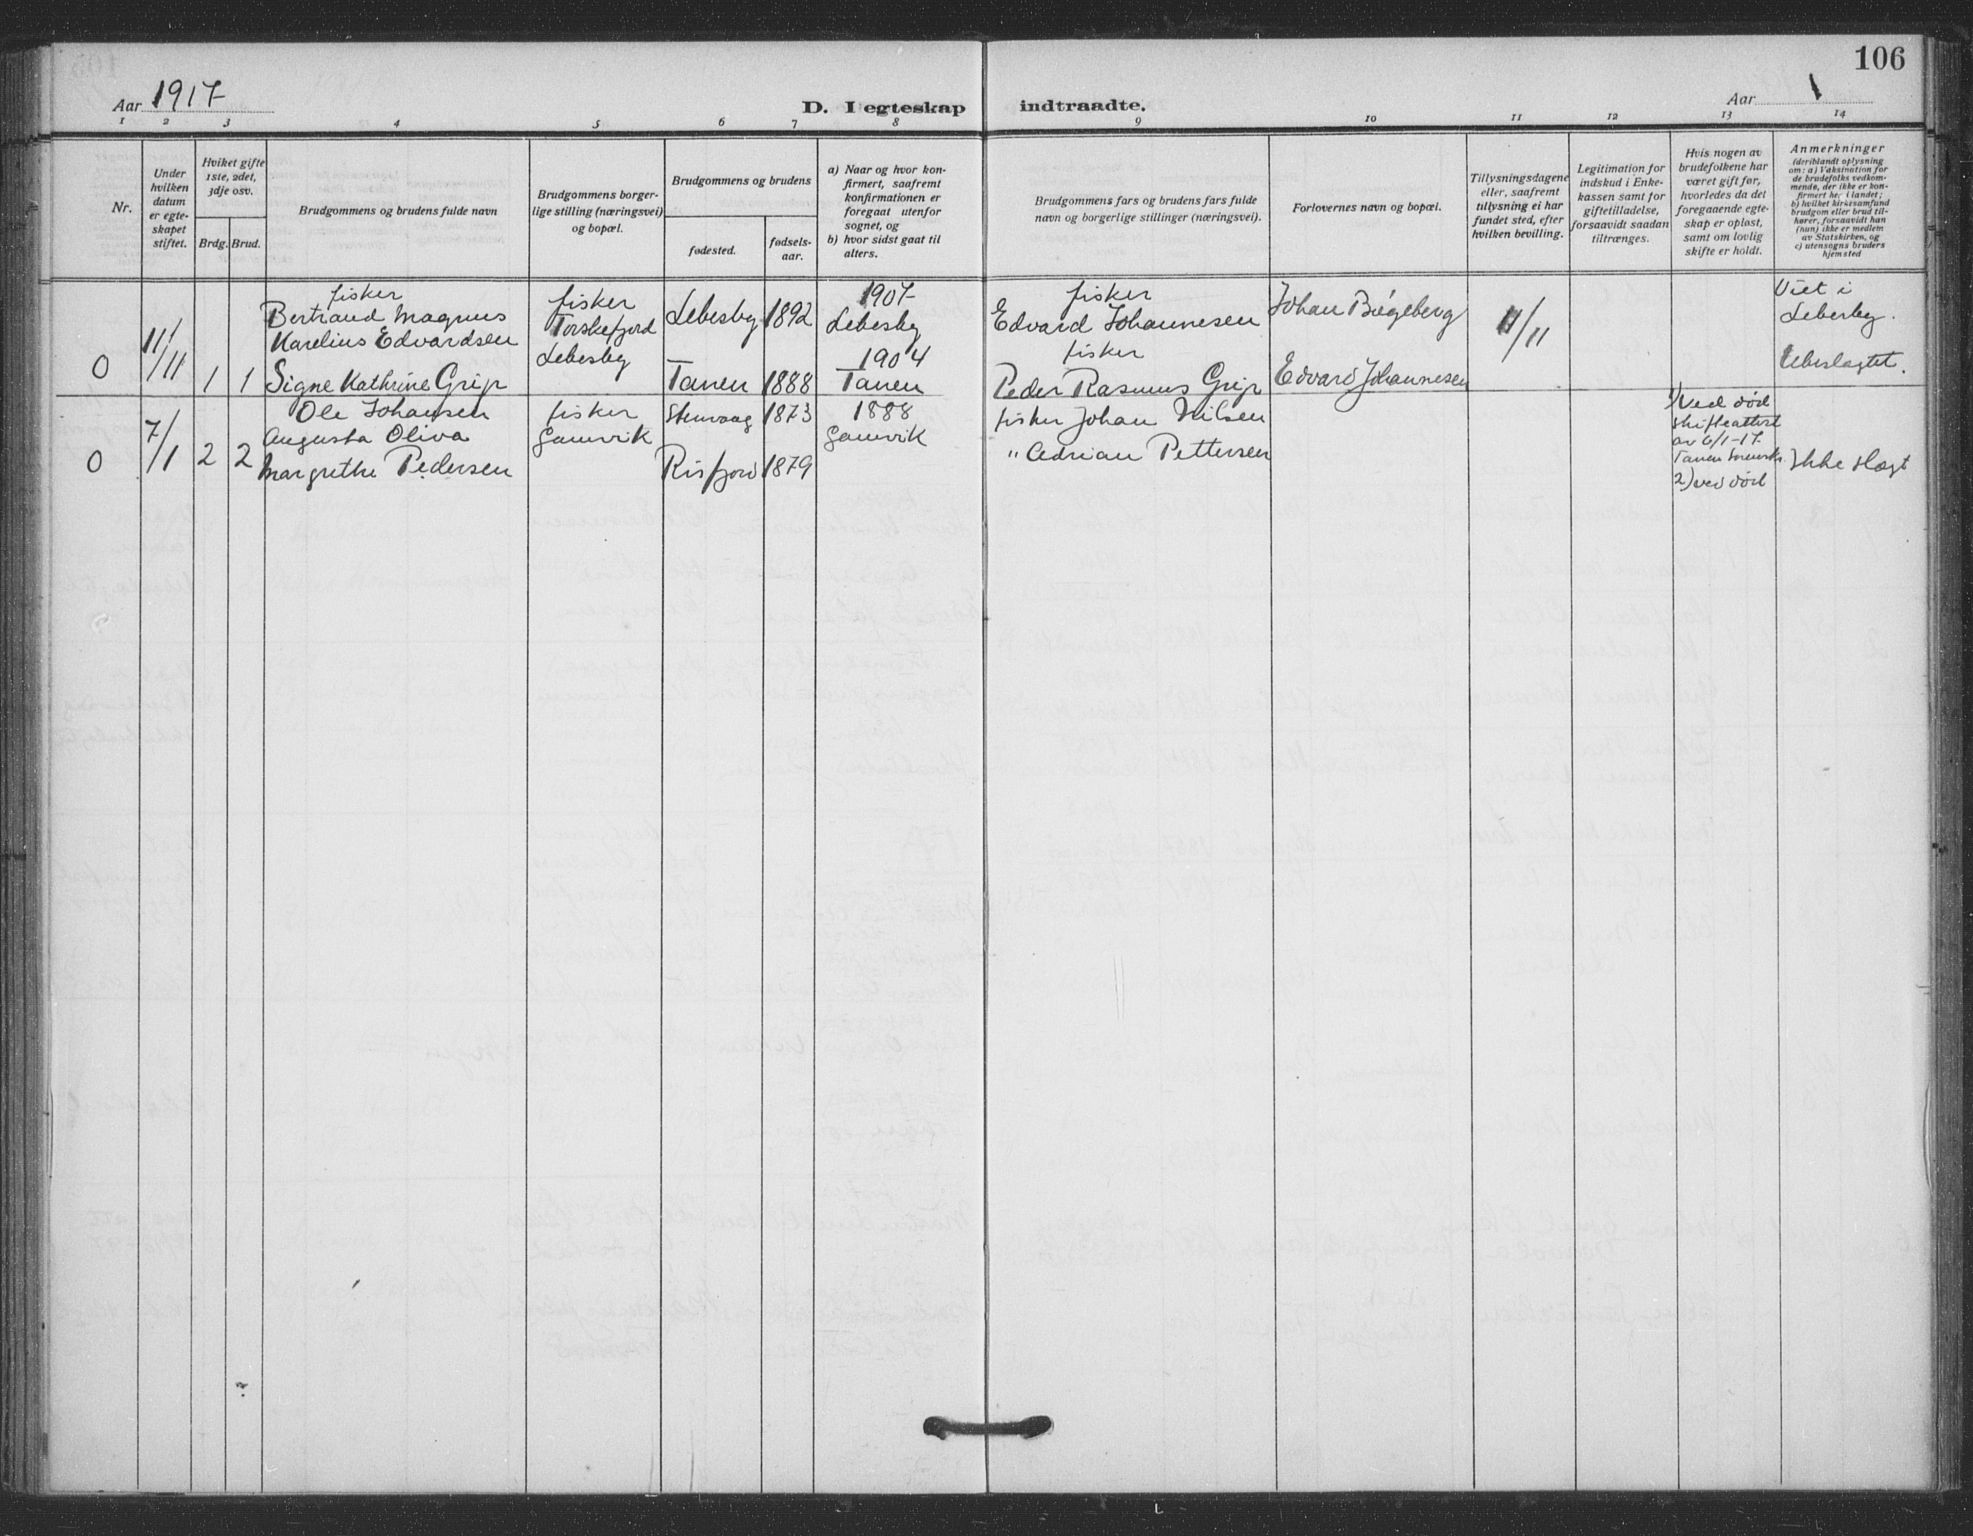 106
Aar 1917
D. I egteskap indtraadte.
Aar
1 2 3 4 5 6 7 8 9 10 11 12 13 14
Nr.
Under
hvilken
datum
er egte-
skapet
stiftet.
Hviket gifte
1ste, 2det,
3dje osv.
Brdg. Brud.
Brudgommens og brudens fulde navn
Brudgommens borger-
lige stilling (næringsvei)
og bopæl.
Brudgommens og brudens
fødested.
fødsels-
aar.
a) Naar og hvor kon-
firmert, saafremt
konfirmationen er
foregaat utenfor
sognet, og
b) hvor sidst gaat til
alters.
Brudgommens fars og brudens fars fulde
navn og borgerlige stillinger (næringsvei).
Forlovernes navn og bopæl.
Tillysningsdagene
eller, saafremt
tillysning ei har
fundet sted, efter
hvilken bevilling.
Legitimation for
indskud i Enke-
kassen samt for
giftetilladelse,
forsaavidt saadan
tiltrænges.
Hvis nogen av
brudefolkene har
været gift før,
hvorledes da det
foregaaende egte-
skap er opløst,
samt om lovlig
skifte er holdt.
Anmerkninger
(deriblandt oplysning
om: a) Vaksination for
de brudefolks vedkom-
mende, der ikke er kon-
firmert her i landet;
b) hvilket kirkesamfund
brudgom eller brud til-
hører, forsaavidt han
(hun) ikke er medlem
av Statskirken, og
c) utensogns bruders
hjemsted
0
11/11
1 1
fisker
Bertrand Magnus
Karelius Edvardsen
Signe Kathrine Grip
fisker
Torskefjord
Lebesby
Lebesby 1892
Tanen 1888
1907
Lebesby
1904
Tanen
fisker
Edvard Johannesen
fisker
Peder Rasmus Grip
Johan Bøgeberg
Edvard Johannesen
11/11
Viet i
Lebesby.
Ubeslagtet.
0
7/1
2 2
Ole Johansen
Augusta Oliva
Margrethe Pedersen
fisker
Gamvik
Stenvaag 1873
Risfjord 1879
1888
Gamvik
fisker Johan Nilsen
" Adrian Pettersen
1) Ved død
skifteattest
av 6/1-17
Tanen
2) ved død
Ikke slægt